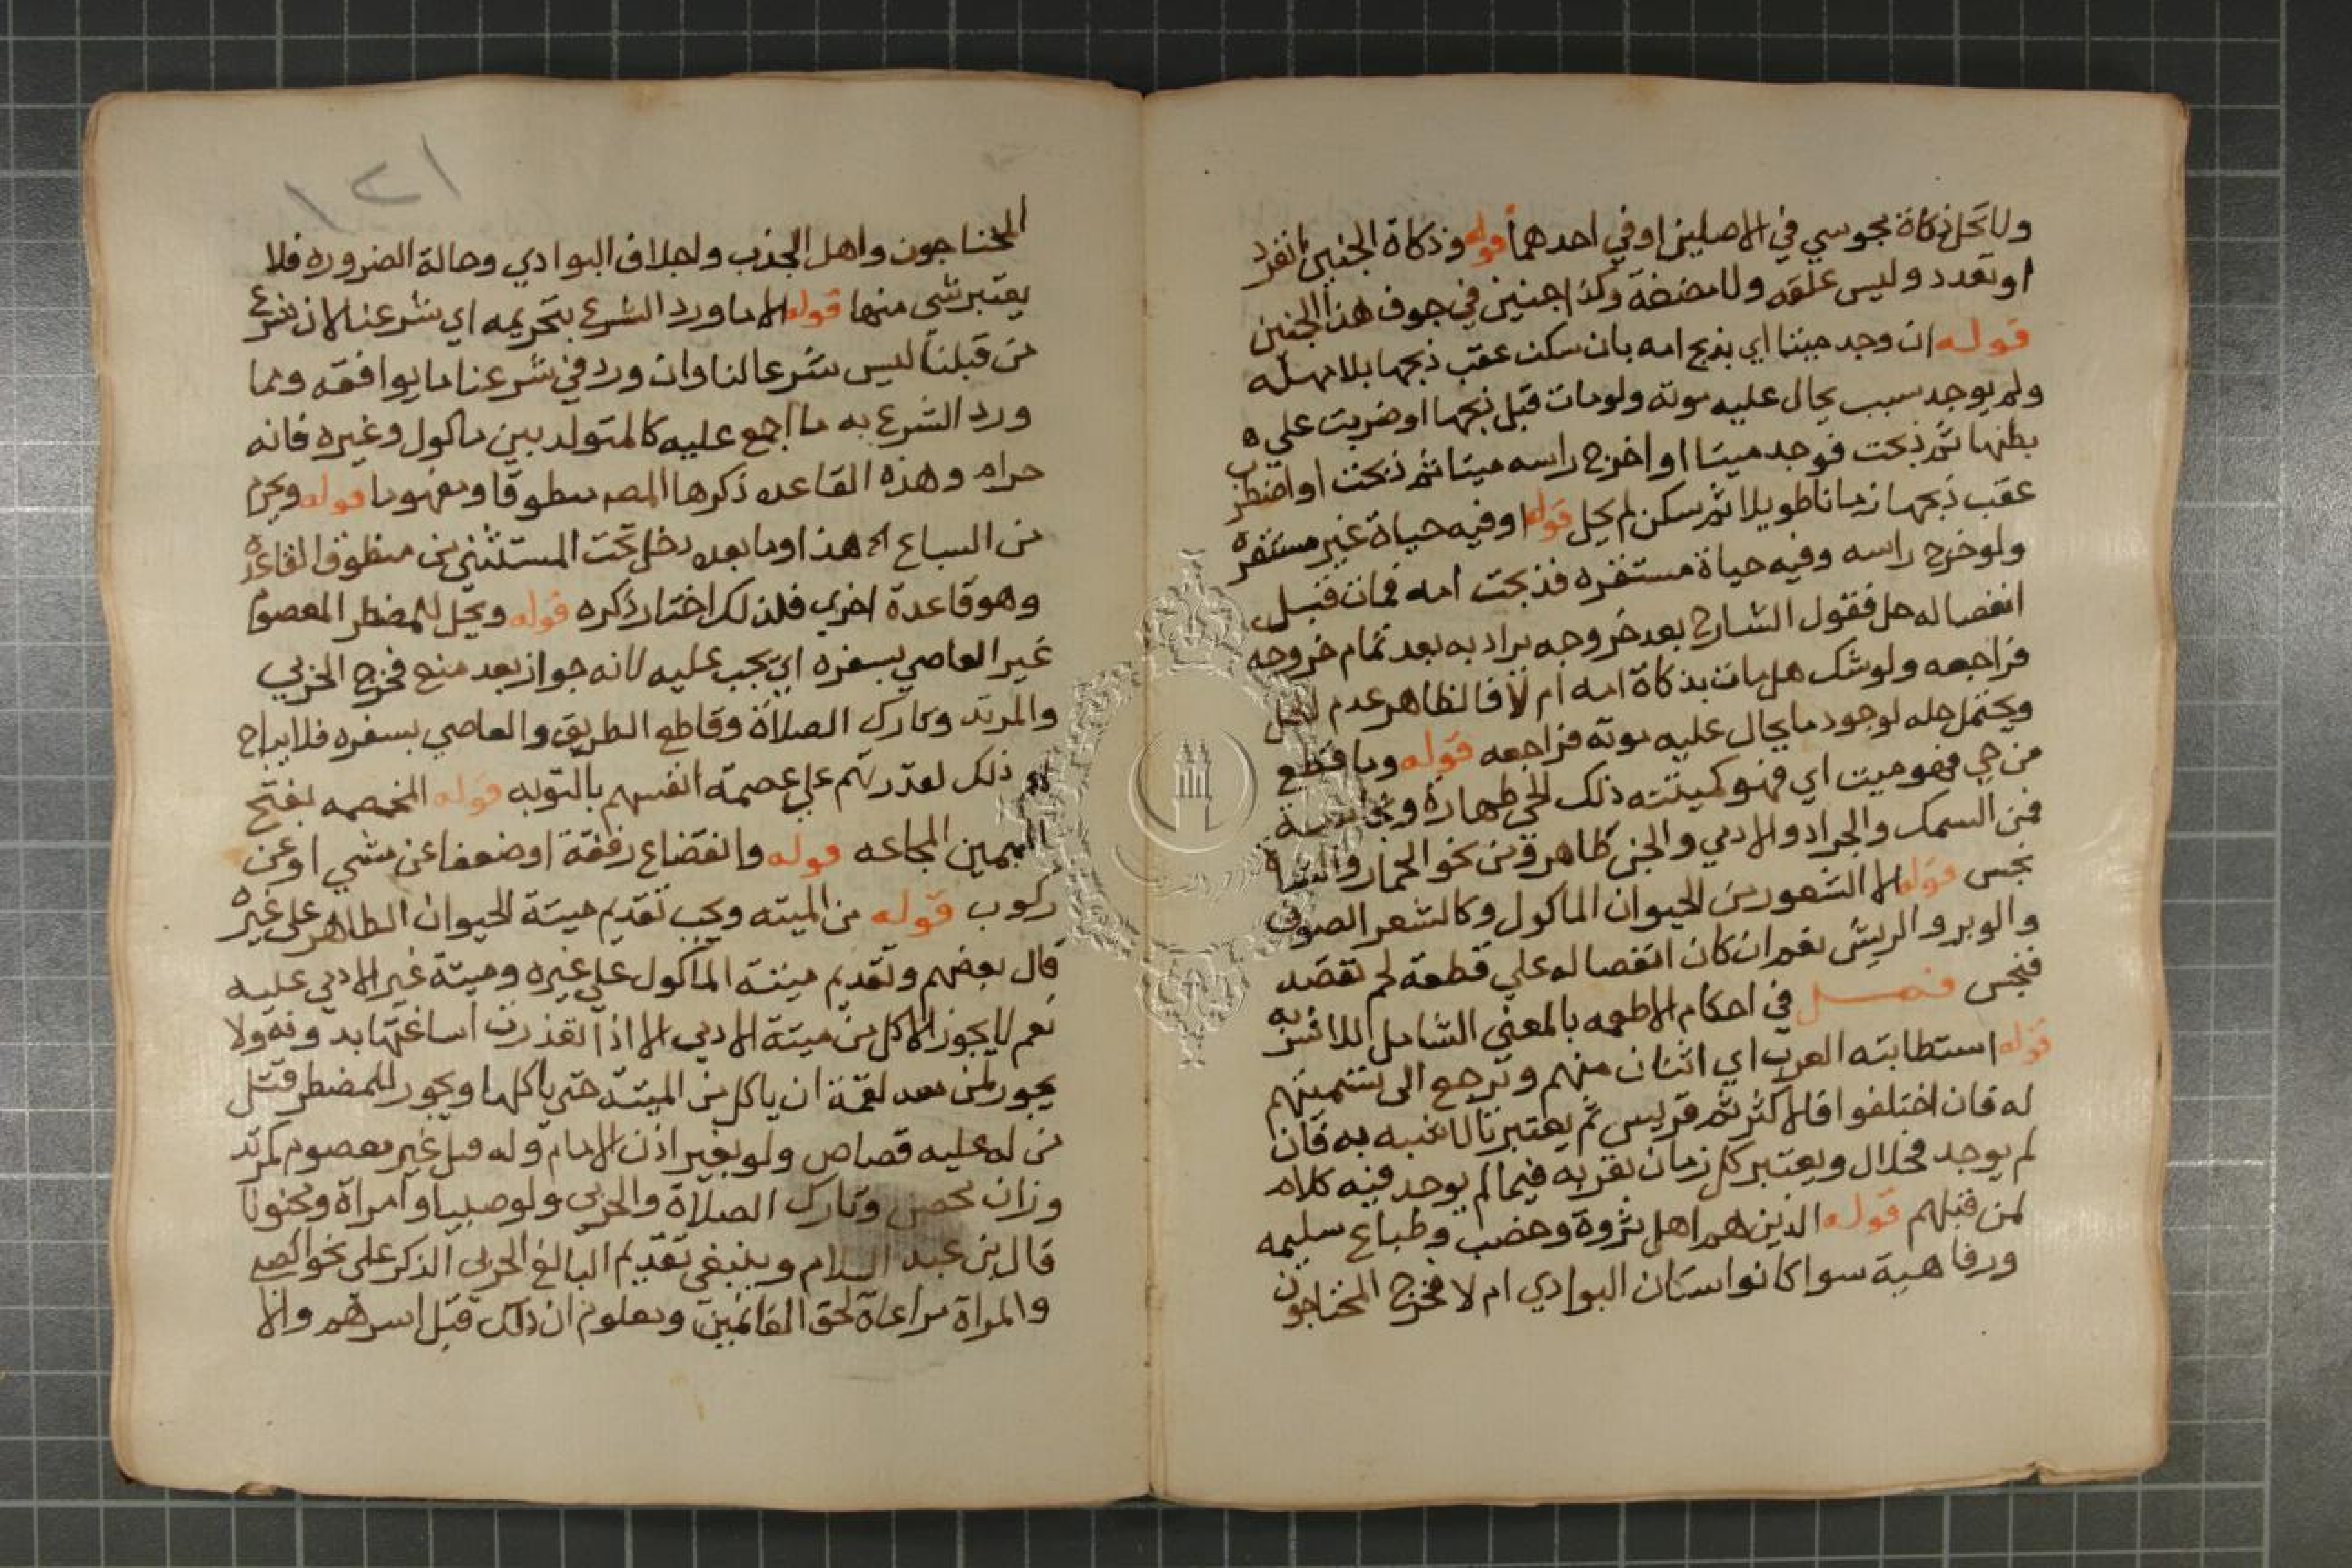 ولا تحل ذكاة مجوسي في الاصلين او في احدهما قوله وذكاة الجنين انفرد
او تعدد وليس علقه ولا مضغة وكذا جنين في جوف هذا الجنين
قوله ان وجد ميتا اي بذبح امه بان سكن عقب ذبحها بلا مهله
ولم يوجد سبب يحال عليه موته ولو مات قبل ذبحها او ضربت علي
بطنها ثم ذبحت فوجد ميتا او اخرج راسه ميتا ثم ذبحت او اضطرب
عقب ذبحها زمانا طويلا ثم سكن لم يحل قوله او فيه حياة غير مستقره
ولو خرج راسه وفيه حياة مستقره فذبحت امه فمات قبل
انفصاله حل فقول الشارح بعد خروجه يراد به بعد تمام خروجه
فراجعه ولو شك هل مات بذكاة امه ام لا فالظاهر عدم الحل
ويحتمل حله لوجود ما يحال عليه موته فراجعه قوله وما قطع
من حي فهو ميت اي فهو كميتته ذلك الحي طهارة ونجاسة
فمن السمك والجراد والادمي والجن طاهر ومن نحو الحمار والشاة
نجس قوله الا الشعور من الحيوان الماكول وكالشعر الصوف
والوبر والريش نعم ان كان انفصاله علي قطعة لحم تقصد
فنجس فصل في احكام الاطعمه بالمعني الشامل للاشربه
قوله استطابته العرب اي اثنان منهم ونرجع الى تسميتهم
له فان اختلفوا فالاكثر ثم قريس ثم يعتبر بالاشبه به فان
لم يوجد فحلال ويعتبر كل زمان بعربه فيما لم يوجد فيه كلام
لمن قبلهم قوله الذين هم اهل ثروة وخصب وطباع سليمه
ورفاهية سوا كانوا سكان البوادي ام لا فخرج المحتاجون
١٢١
المحتاجون واهل الجذب واجلاف البوادي وحالة الضروره فلا
يعتبر شى منها قوله الا ما ورد الشرع بتحريمه اي شرعنا لان شرع
من قبلنا ليس شرعا لنا وان ورد في شرعنا ما يوافقه ومما
ورد الشرع به ما اجمع عليه كالمتولد بين ماكول وغيره فانه
حرام وهذه القاعده ذكرها المصه منطوقا ومفهوما قوله ويحرم
من السباع الخ هذا وما بعده دخل تحت المستثنى من منطوق القاعده
وهو قاعدة اخري فلذلك اختار ذكره قوله ويحل للمضطر المعصوم
غير العاصي بسفره اي يجب عليه لانه جواز بعد منع فخرج الحربي
والمرتد وتارك الصلاة وقاطع الطريق والعاصي بسفره فلا يباح
لهم ذلك لقدرتهم علي عصمة انفسهم بالتوبه قوله المخمصه بفتح
الميمين المجاعه قوله وانقضاع رفقة او ضعفا عن مشي او عن
ركوب قوله من الميته ويجب تقديم ميتة الحيوان الطاهر على غيره
قال بعضهم وتقديم ميتة الماكول علي غيره وميتة غير الادمي عليه
نعم لا يجوز الاكل من ميتة الادمي الا اذا تعذرت اساغتها بدونه ولا
يجوز لمن معه لقمة ان ياكل من الميتة حتي ياكلها ويجوز للمضطر قتل
من له عليه قصاص ولو بغير اذن الامام وله قتل غير معصوم كمرتد
وزان محصن وتارك الصلاة والحربى ولو صبيا وامراة ومجنونا
قال بن عبد السلام وينبغي تقديم البالغ الحربى الذكر على نحو الصبي
والمراة مراعاة لحق الغانمين ومعلوم ان ذلك قبل اسرهم والا